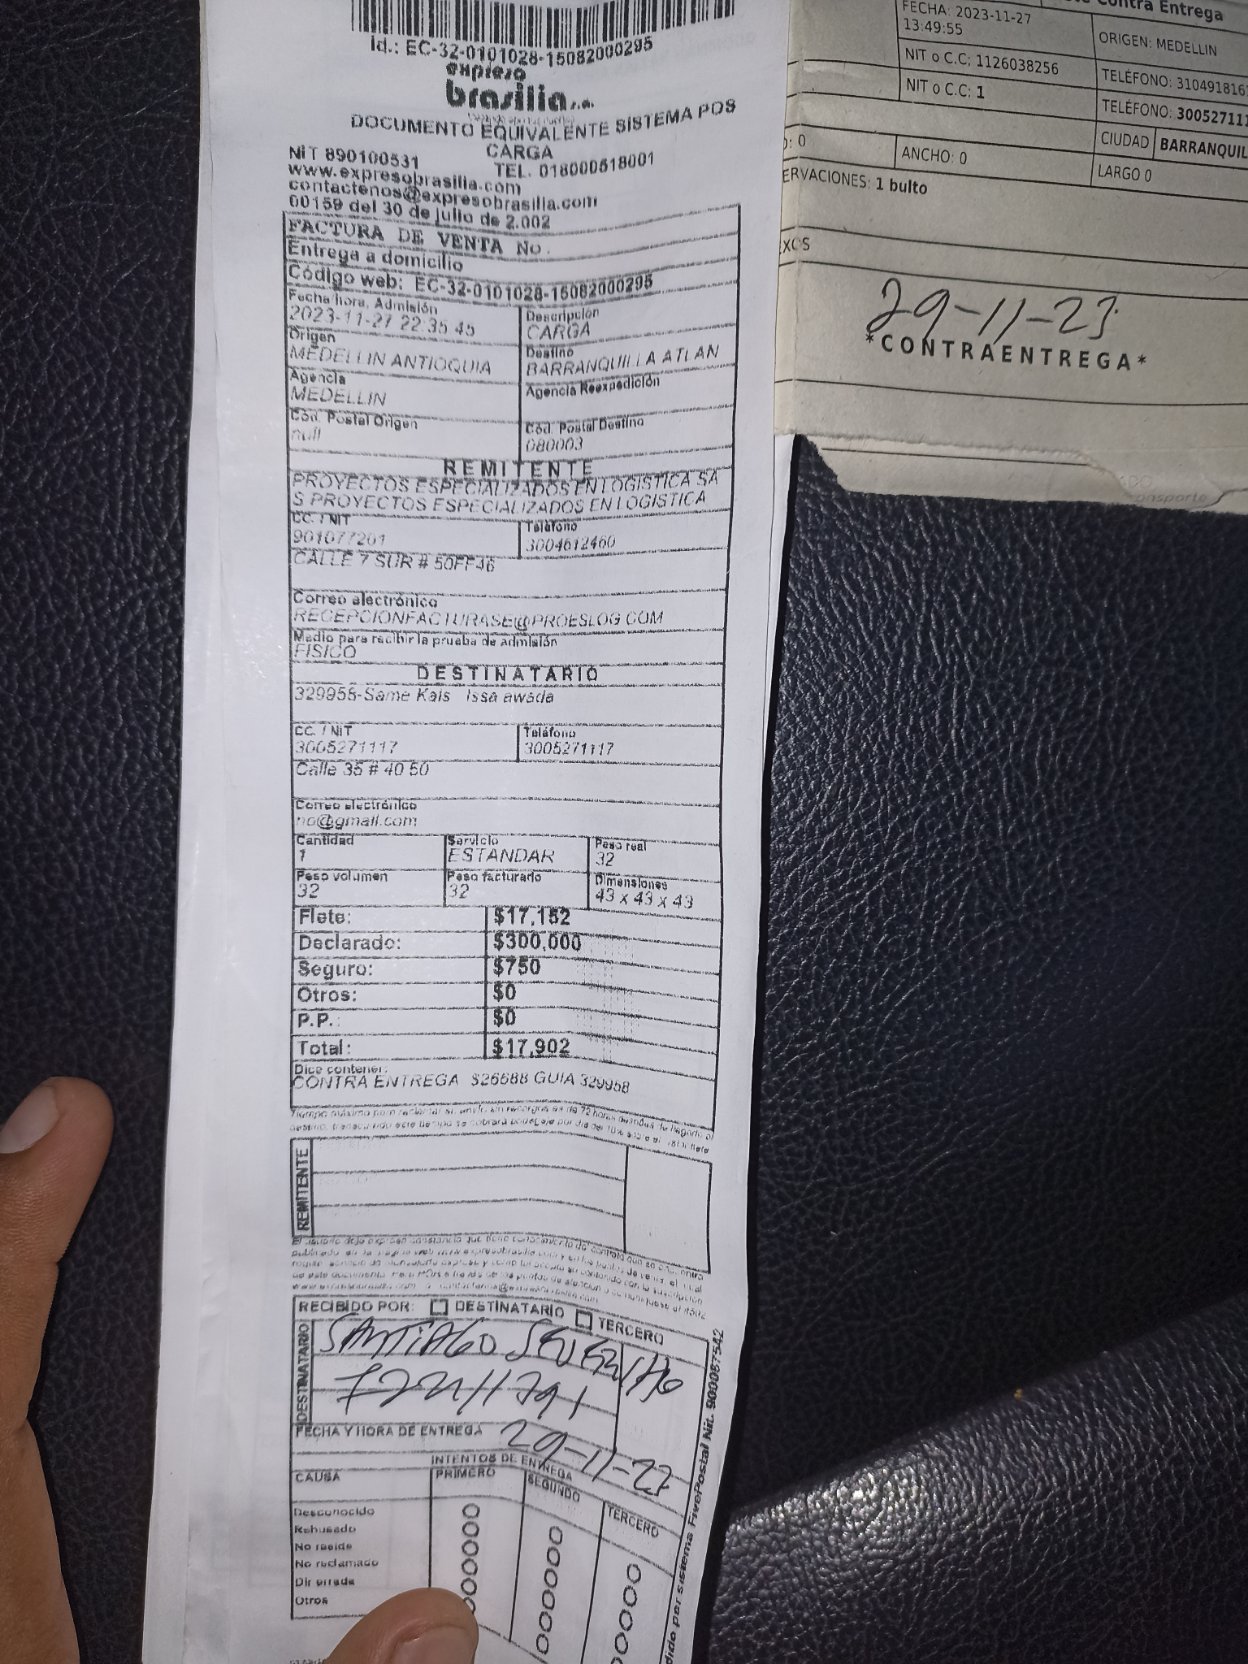 Id.: EC-32-0101028-15082000295
expreso
brasilia s.a.
DOCUMENTO EQUIVALENTE SISTEMA POS
CARGA
NIT 890100531
TEL. 018000518001
www.expresobrasilia.com
contactenos@expresobrasilia.com
00159 del 30 de julio de 2.002
FACTURA DE VENTA No.
Entrega a domicilio
Código web: EC-32-0101028-15082000295
Fecha/hora, Admisión
2023-11-27 22:35:45
Descripción
CARGA
Origen
MEDELLIN ANTIOQUIA
Destino
BARRANQUILLA ATLAN
Agencia
MEDELLIN
Agencia Reexpedición
Cód. Postal Origen
null
Cód. Postal Destino
080003
REMITENTE
PROYECTOS ESPECIALIZADOS EN LOGISTICA SA
S PROYECTOS ESPECIALIZADOS EN LOGISTICA
CC. / NIT
901077201
Teléfono
3004612460
CALLE 7 SUR # 50FF46
Correo electrónico
RECEPCIONFACTURASE@PROESLOG.COM
Medio para recibir la prueba de admisión
FISICO
DESTINATARIO
329958-Same Kais Issa awada
CC. / NIT
3005271117
Teléfono
3005271117
Calle 35 # 40 50
Correo electrónico
no@gmail.com
Cantidad
1
Servicio
ESTANDAR
Peso real
32
Peso volumen
32
Peso facturado
32
Dimensiones
43 x 43 x 43
Flete: $17,152
Declarado: $300,000
Seguro: $750
Otros: $0
P.P.: $0
Total: $17,902
Dice contener:
CONTRA ENTREGA $26688 GUIA 329958
REMITENTE
RECIBIDO POR: DESTINATARIO TERCERO
DESTINATARIO
SANTIAGO
FECHA Y HORA DE ENTREGA 29-11-23
INTENTOS DE ENTREGA
CAUSA PRIMERO SEGUNDO TERCERO
Desconocido
Rehusado
No reside
No reclamado
Dir errada
Otros
dido por sistema FivePostal Nit. 900087542
Contra Entrega
FECHA: 2023-11-27
13:49:55
ORIGEN: MEDELLIN
NIT o C.C: 1126038256
TELÉFONO: 310491816
NIT o C.C: 1
TELÉFONO: 300527111
: 0
ANCHO: 0
CIUDAD BARRANQUIL
LARGO 0
ERVACIONES: 1 bulto
XOS
29-11-23
*CONTRAENTREGA*